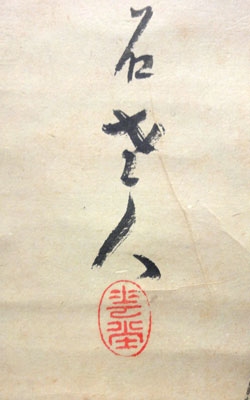 石老人